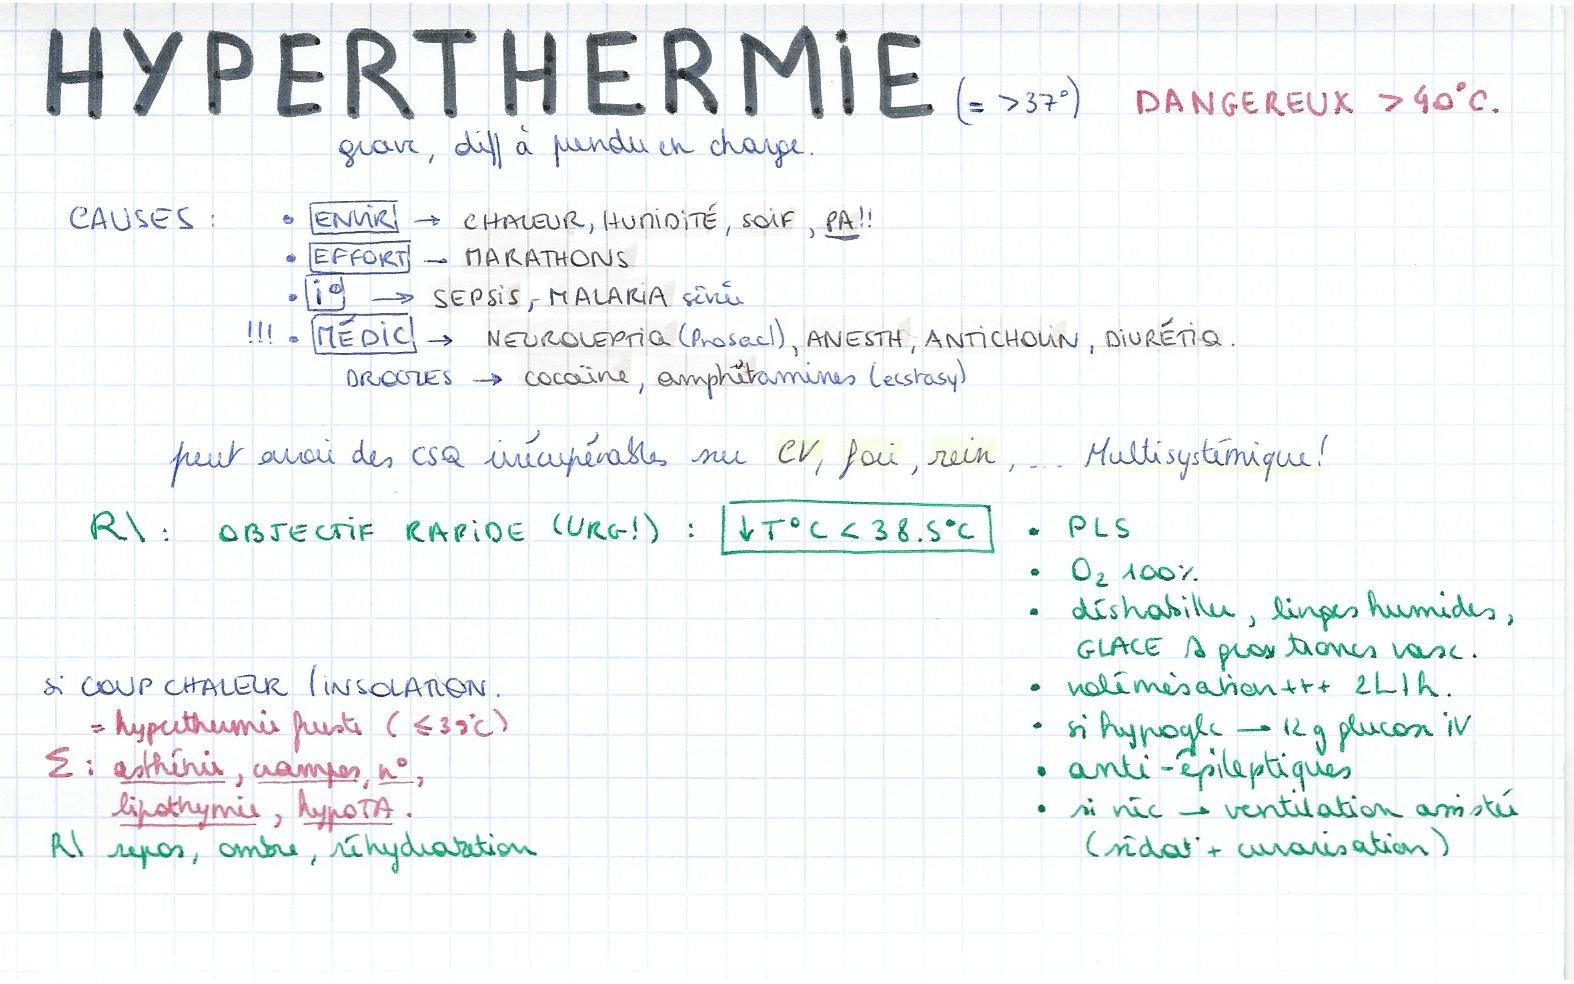 HYPERTHERMIE (= >37°) DANGEREUX >40°C.
grave, diff à prendre en charge.
CAUSES :
• ENVIR → CHALEUR, HUMIDITÉ, SOIF, PA!!
• EFFORT → MARATHONS
• i° → SEPSIS, MALARIA sévère
!!! • MÉDIC → NEUROLEPTIQ (Prosac), ANESTH, ANTICHOLIN, DIURÉTIQ.
DROGUES → cocaïne, amphétamines (ecstasy)
peut avoir des CSQ irrécupérables sur CV, foie, rein, ... Multisystémique!
R\ : OBJECTIF RAPIDE (URG!) : ↓T°C < 38.5°C
• PLS
• O₂ 100%
• déshabiller, linges humides,
GLACE gros troncs vasc.
• volémisation +++ 2L/h.
• si hypoglc → 12g glucose IV
• anti-épileptiques
• si néc → ventilation assistée
(sédat° + curarisation)
si COUP CHALEUR / INSOLATION.
= hyperthermie fruste (≤39°C)
Σ : asthénie, crampes, n°,
lipothymie, hypoTA.
R\ repos, ombre, réhydratation